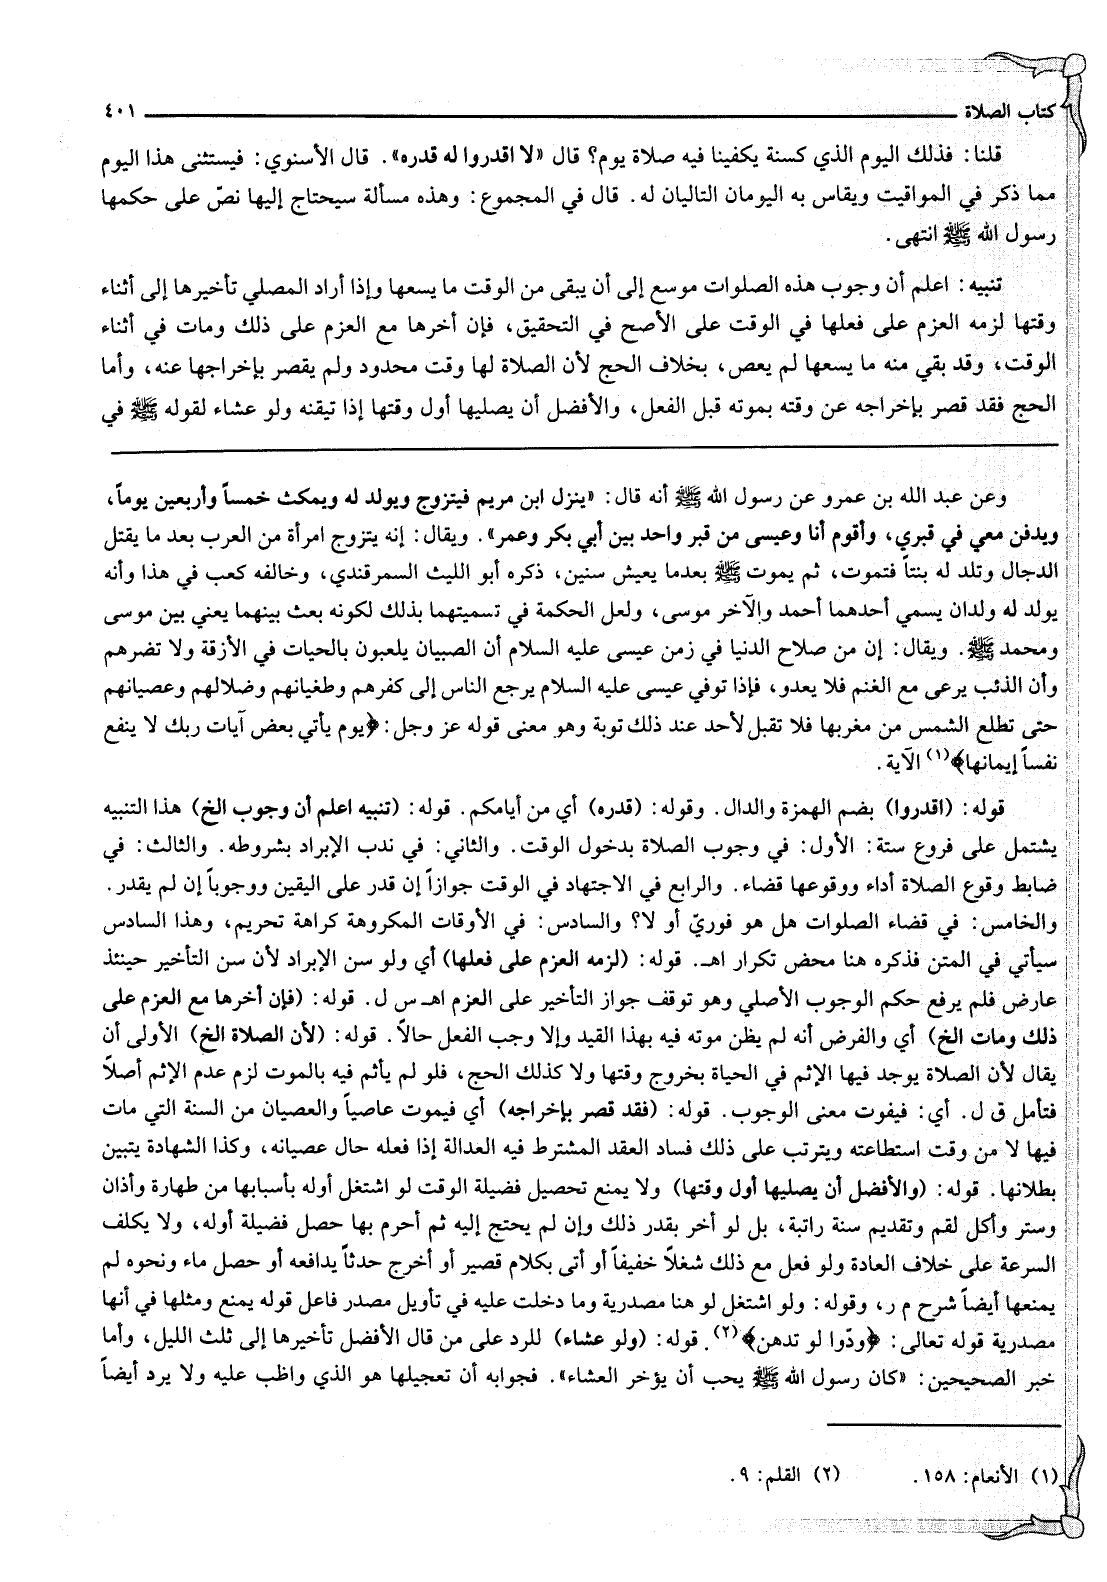 كتاب الصلاة ٤٠١
قلنا: فذلك اليوم الذي كسنة يكفينا فيه صلاة يوم؟ قال «لا اقدروا له قدره». قال الأسنوي: فيستثنى هذا اليوم
مما ذكر في المواقيت ويقاس به اليومان التاليان له. قال في المجموع: وهذه مسألة سيحتاج إليها نصّ على حكمها
رسول الله ﷺ انتهى.
تنبيه: اعلم أن وجوب هذه الصلوات موسع إلى أن يبقى من الوقت ما يسعها وإذا أراد المصلي تأخيرها إلى أثناء
وقتها لزمه العزم على فعلها في الوقت على الأصح في التحقيق، فإن أخرها مع العزم على ذلك ومات في أثناء
الوقت، وقد بقي منه ما يسعها لم يعص، بخلاف الحج لأن الصلاة لها وقت محدود ولم يقصر بإخراجها عنه، وأما
الحج فقد قصر بإخراجه عن وقته بموته قبل الفعل، والأفضل أن يصليها أول وقتها إذا تيقنه ولو عشاء لقوله ﷺ في
وعن عبد الله بن عمرو عن رسول الله ﷺ أنه قال: «ينزل ابن مريم فيتزوج ويولد له ويمكث خمساً وأربعين يوماً،
ويدفن معي في قبري، وأقوم أنا وعيسى من قبر واحد بين أبي بكر وعمر». ويقال: إنه يتزوج امرأة من العرب بعد ما يقتل
الدجال وتلد له بنتاً فتموت، ثم يموت ﷺ بعدما يعيش سنين، ذكره أبو الليث السمرقندي، وخالفه كعب في هذا وأنه
يولد له ولدان يسمي أحدهما أحمد والآخر موسى، ولعل الحكمة في تسميتهما بذلك لكونه بعث بينهما يعني بين موسى
ومحمد ﷺ. ويقال: إن من صلاح الدنيا في زمن عيسى عليه السلام أن الصبيان يلعبون بالحيات في الأزقة ولا تضرهم
وأن الذئب يرعى مع الغنم فلا يعدو، فإذا توفي عيسى عليه السلام يرجع الناس إلى كفرهم وطغيانهم وضلالهم وعصيانهم
حتى تطلع الشمس من مغربها فلا تقبل لأحد عند ذلك توبة وهو معنى قوله عز وجل: ﴿يوم يأتي بعض آيات ربك لا ينفع
نفساً إيمانها﴾(١) الآية.
قوله: (اقدروا) بضم الهمزة والدال. وقوله: (قدره) أي من أيامكم. قوله: (تنبيه اعلم أن وجوب الخ) هذا التنبيه
يشتمل على فروع ستة: الأول: في وجوب الصلاة بدخول الوقت. والثاني: في ندب الإبراد بشروطه. والثالث: في
ضابط وقوع الصلاة أداء ووقوعها قضاء. والرابع في الاجتهاد في الوقت جوازاً إن قدر على اليقين ووجوباً إن لم يقدر.
والخامس: في قضاء الصلوات هل هو فوريّ أو لا؟ والسادس: في الأوقات المكروهة كراهة تحريم، وهذا السادس
سيأتي في المتن فذكره هنا محض تكرار اهـ. قوله: (لزمه العزم على فعلها) أي ولو سن الإبراد لأن سن التأخير حينئذ
عارض فلم يرفع حكم الوجوب الأصلي وهو توقف جواز التأخير على العزم اهـ س ل. قوله: (فإن أخرها مع العزم على
ذلك ومات الخ) أي والفرض أنه لم يظن موته فيه بهذا القيد وإلا وجب الفعل حالاً. قوله: (لأن الصلاة الخ) الأولى أن
يقال لأن الصلاة يوجد فيها الإثم في الحياة بخروج وقتها ولا كذلك الحج، فلو لم يأثم فيه بالموت لزم عدم الإثم أصلاً
فتأمل ق ل. أي: فيفوت معنى الوجوب. قوله: (فقد قصر بإخراجه) أي فيموت عاصياً والعصيان من السنة التي مات
فيها لا من وقت استطاعته ويترتب على ذلك فساد العقد المشترط فيه العدالة إذا فعله حال عصيانه، وكذا الشهادة يتبين
بطلانها. قوله: (والأفضل أن يصليها أول وقتها) ولا يمنع تحصيل فضيلة الوقت لو اشتغل أوله بأسبابها من طهارة وأذان
وستر وأكل لقم وتقديم سنة راتبة، بل لو أخر بقدر ذلك وإن لم يحتج إليه ثم أحرم بها حصل فضيلة أوله، ولا يكلف
السرعة على خلاف العادة ولو فعل مع ذلك شغلاً خفيفاً أو أتى بكلام قصير أو أخرج حدثاً يدافعه أو حصل ماء ونحوه لم
يمنعها أيضاً شرح م ر، وقوله: ولو اشتغل لو هنا مصدرية وما دخلت عليه في تأويل مصدر فاعل قوله يمنع ومثلها في أنها
مصدرية قوله تعالى: ﴿ودّوا لو تدهن﴾(٢). قوله: (ولو عشاء) للرد على من قال الأفضل تأخيرها إلى ثلث الليل، وأما
خبر الصحيحين: «كان رسول الله ﷺ يحب أن يؤخر العشاء». فجوابه أن تعجيلها هو الذي واظب عليه ولا يرد أيضاً
(١) الأنعام: ١٥٨. (٢) القلم: ٩.